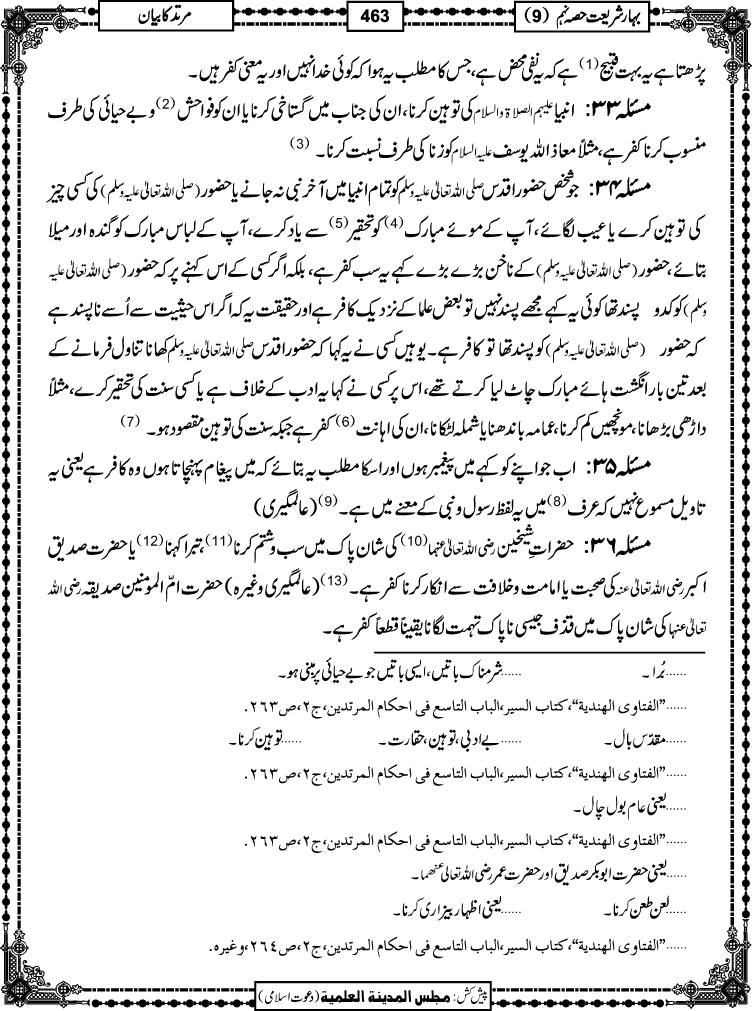 بہار شریعت حصہ نہم (9)
463
مرتد کا بیان
پڑھتا ہے یہ بہت قبیح (1) ہے کہ یہ نفی محض ہے، جس کا مطلب یہ ہوا کہ کوئی خدا نہیں اور یہ معنی کفر ہیں۔
مسئلہ ۳۳: انبیا علیہم الصلاۃ والسلام کی توہین کرنا، ان کی جناب میں گستاخی کرنا یا ان کو فواحش (2) و بے حیائی کی طرف
منسوب کرنا کفر ہے، مثلاً معاذ اللہ یوسف علیہ السلام کو زنا کی طرف نسبت کرنا۔ (3)
مسئلہ ۳۴: جو شخص حضور اقدس صلی اللہ تعالیٰ علیہ وسلم کو تمام انبیا میں آخر نبی نہ جانے یا حضور (صلی اللہ تعالیٰ علیہ وسلم) کی کسی چیز
کی توہین کرے یا عیب لگائے، آپ کے موئے مبارک (4) کو تحقیر (5) سے یاد کرے، آپ کے لباس مبارک کو گندہ اور میلا
بتائے، حضور (صلی اللہ تعالیٰ علیہ وسلم) کے ناخن بڑے بڑے کہے یہ سب کفر ہے، بلکہ اگر کسی کے اس کہنے پر کہ حضور (صلی اللہ تعالیٰ علیہ
وسلم) کو کدو پسند تھا کوئی یہ کہے مجھے پسند نہیں تو بعض علما کے نزدیک کافر ہے اور حقیقت یہ کہ اگر اس حیثیت سے اُسے ناپسند ہے
کہ حضور (صلی اللہ تعالیٰ علیہ وسلم) کو پسند تھا تو کافر ہے۔ یوہیں کسی نے یہ کہا کہ حضور اقدس صلی اللہ تعالیٰ علیہ وسلم کھانا تناول فرمانے کے
بعد تین بار انگشت ہائے مبارک چاٹ لیا کرتے تھے، اس پر کسی نے کہا یہ ادب کے خلاف ہے یا کسی سنت کی تحقیر کرے، مثلاً
داڑھی بڑھانا، مونچھیں کم کرنا، عمامہ باندھنا یا شملہ لٹکانا، ان کی اہانت (6) کفر ہے جبکہ سنت کی توہین مقصود ہو۔ (7)
مسئلہ ۳۵: اب جو اپنے کو کہے میں پیغمبر ہوں اور اسکا مطلب یہ بتائے کہ میں پیغام پہنچاتا ہوں وہ کافر ہے یعنی یہ
تاویل مسموع نہیں کہ عرف (8) میں یہ لفظ رسول و نبی کے معنے میں ہے۔ (9) (عالمگیری)
مسئلہ ۳۶: حضرات شیخین رضی اللہ تعالیٰ عنہما (10) کی شان پاک میں سب و شتم کرنا (11)، تبرا کہنا (12) یا حضرت صدیق
اکبر رضی اللہ تعالیٰ عنہ کی صحبت یا امامت و خلافت سے انکار کرنا کفر ہے۔ (13) (عالمگیری وغیرہ) حضرت امّ المومنین صدیقہ رضی اللہ
تعالیٰ عنہا کی شان پاک میں قذف جیسی ناپاک تہمت لگانا یقیناً قطعاً کفر ہے۔
......بُرا۔ ......شرمناک باتیں، ایسی باتیں جو بے حیائی پر مبنی ہو۔
......"الفتاوی الهندیة"، کتاب السیر، الباب التاسع فی احکام المرتدین، ج٢، ص٢٦٣.
......مقدّس بال۔ ......بے ادبی، توہین، حقارت۔ ......توہین کرنا۔
......"الفتاوی الهندیة"، کتاب السیر، الباب التاسع فی احکام المرتدین، ج٢، ص٢٦٣.
......یعنی عام بول چال۔
......"الفتاوی الهندیة"، کتاب السیر، الباب التاسع فی احکام المرتدین، ج٢، ص٢٦٣.
......یعنی حضرت ابو بکر صدیق اور حضرت عمر رضی اللہ تعالیٰ عنہما۔
......لعن طعن کرنا۔ ......یعنی اظہار بیزاری کرنا۔
......"الفتاوی الهندیة"، کتاب السیر، الباب التاسع فی احکام المرتدین، ج٢، ص٢٦٤، وغیره.
پیش کش: مجلس المدینة العلمیة (دعوت اسلامی)